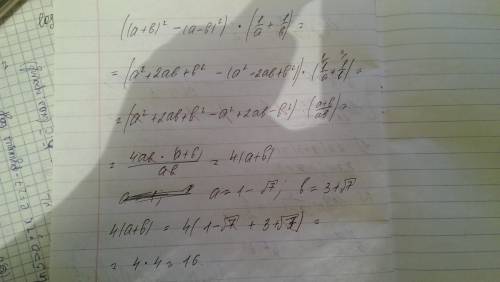 ((a+b)² - (a-b)²) · (1/a + 1/b) =
= (a² + 2ab + b² - (a² - 2ab + b²)) · (1/a + 1/b) =
= (a² + 2ab + b² - a² + 2ab - b²) · ((a+b)/ab) =
= 4ab · (a+b) / ab = 4(a+b)
a = 1 - √7; b = 3 + √7
4(a+b) = 4(1 - √7 + 3 + √7) =
= 4 · 4 = 16